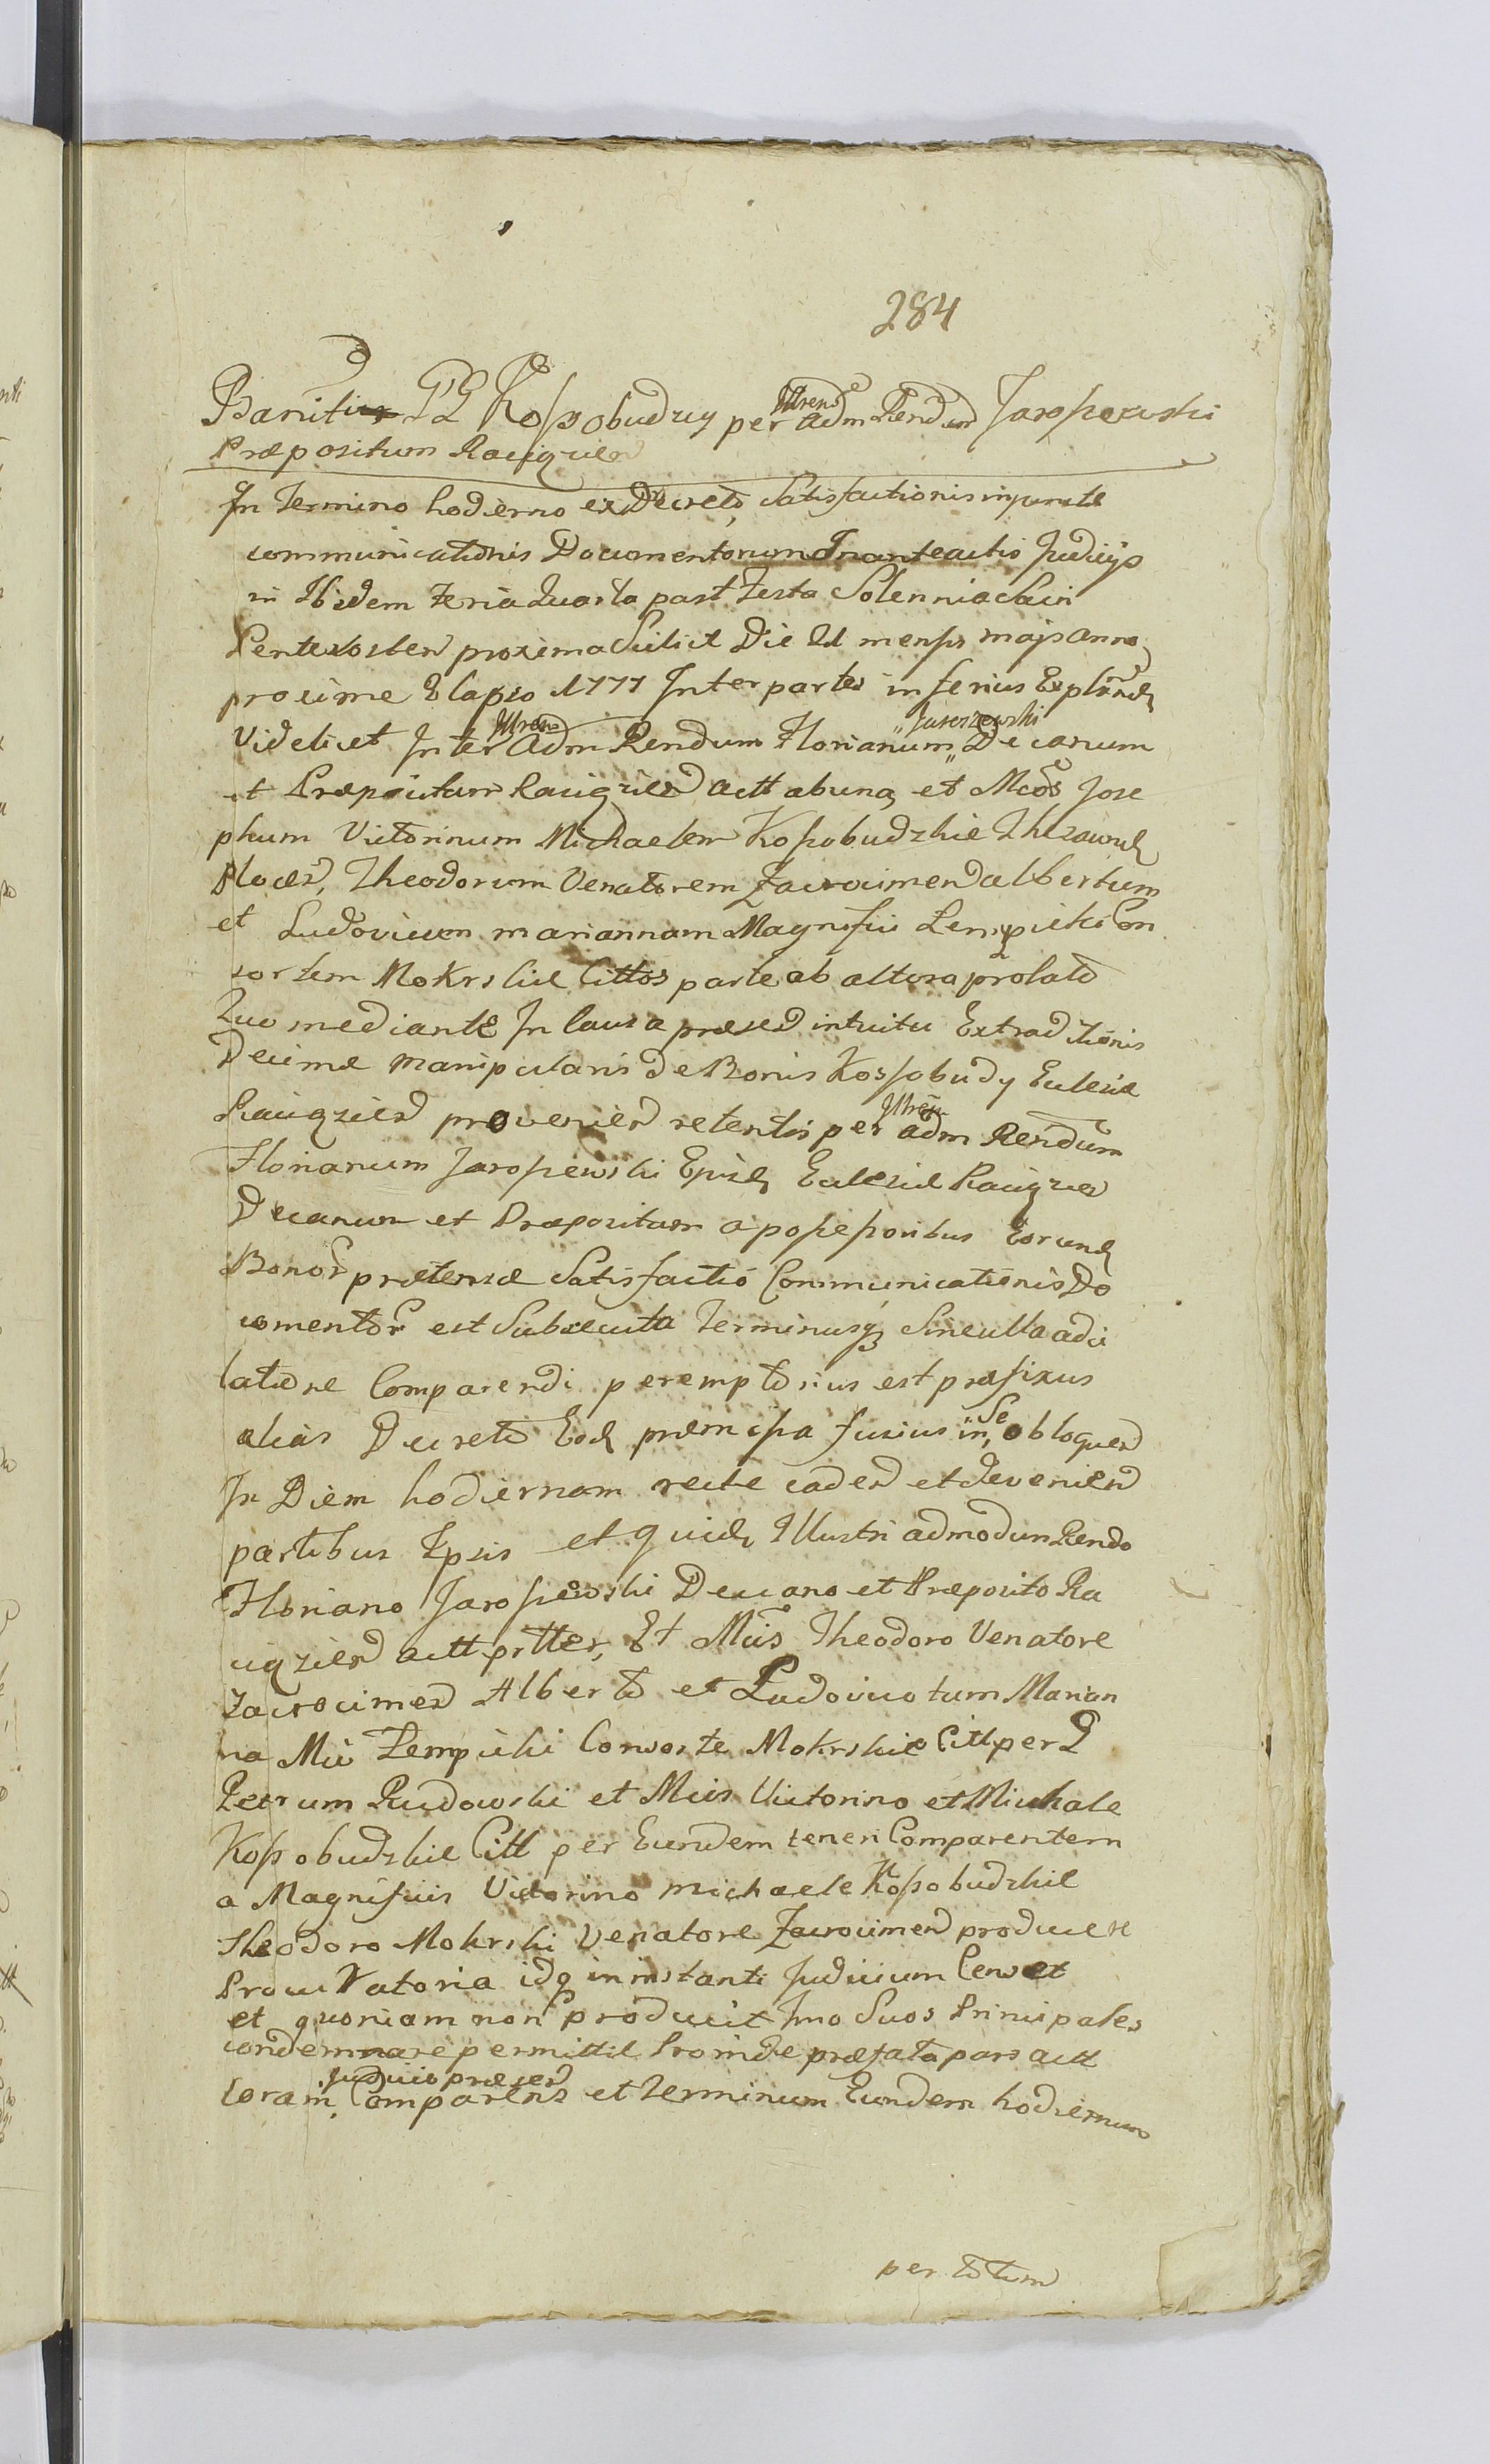 284
Banitio PP Kossobudzcy per Illrem adm Rendum Jaroszewski
Præpositum Raciązien
In Termino hodierno ex Decreto, Satisfactionis in puncte
communicationis Documentorum In anteactis Judicijs
in Ibidem Feria Quarta post Festa Solennia Sacri
Pentecosten proxima Scilicet Die 21 mensis maji anno
proxime Elapso 1777 Inter partes inferius Explrand
Videlicet Inter Illrem Adm Rendum Florianum „Jaroszewski„ Decanum
et Præpositum Raciązien actt ab una, et Mcos Jose
phum Victorinum Michaelem Kossobudzkie Thesaurd
Plocen, Theodorum Venatorem Zacrocimen Albertum
et Ludovicum mariannam Magnifici Lempicki Con
sortem Mokrskie Cittos parte ab altera prolato
Quo mediante In Causa præsen intuitu Extraditionis
Decimæ manipularis de Bonis Kossobudy Eclesiæ
Raciązien provenien retentis per Illrem adm Rendum
Florianum Jaroszewski Ejusd Eclesiæ Raciązien
Decanum et Præpositum a possessoribus Eorund
Bonor prætensæ Satisfactio Communicationis Do
comentor est Subsecuta Terminusq Sine ulla adci
tatione Comparendi peremptorius est præfixus
alias Decreto Eod præmissa fusius in Se obloquen
In Diem hodiernam recte caden et devenien
partibus Ipsis et quid Illustri admodum Rendo
Floriano Jaroszewski Decano et Præposito Ra
ciązien actt prtter, Et Mcis Theodoro Venatore
Zacrocimen Alberto et Ludovico tum Marian
na Mci Lempicki Consorte Mokrskie Citt per G
Petrum Rudowski et Mcis Victorino et Michale
Kossobudzkie Citt per Eundem teneri Comparentem
a Magnificis Victorino Michaele Kossobudzkie
Theodoro Mokrski Venatore Zacrocimen producere
Procuratoria idq in instanti Judicium Censet
et quoniam non producit Imo Suos Principales
condemnare permittit Proinde præfata pars actt
Coram Judicio præsen Comparens et Terminum Eundem hodiernum
per totum